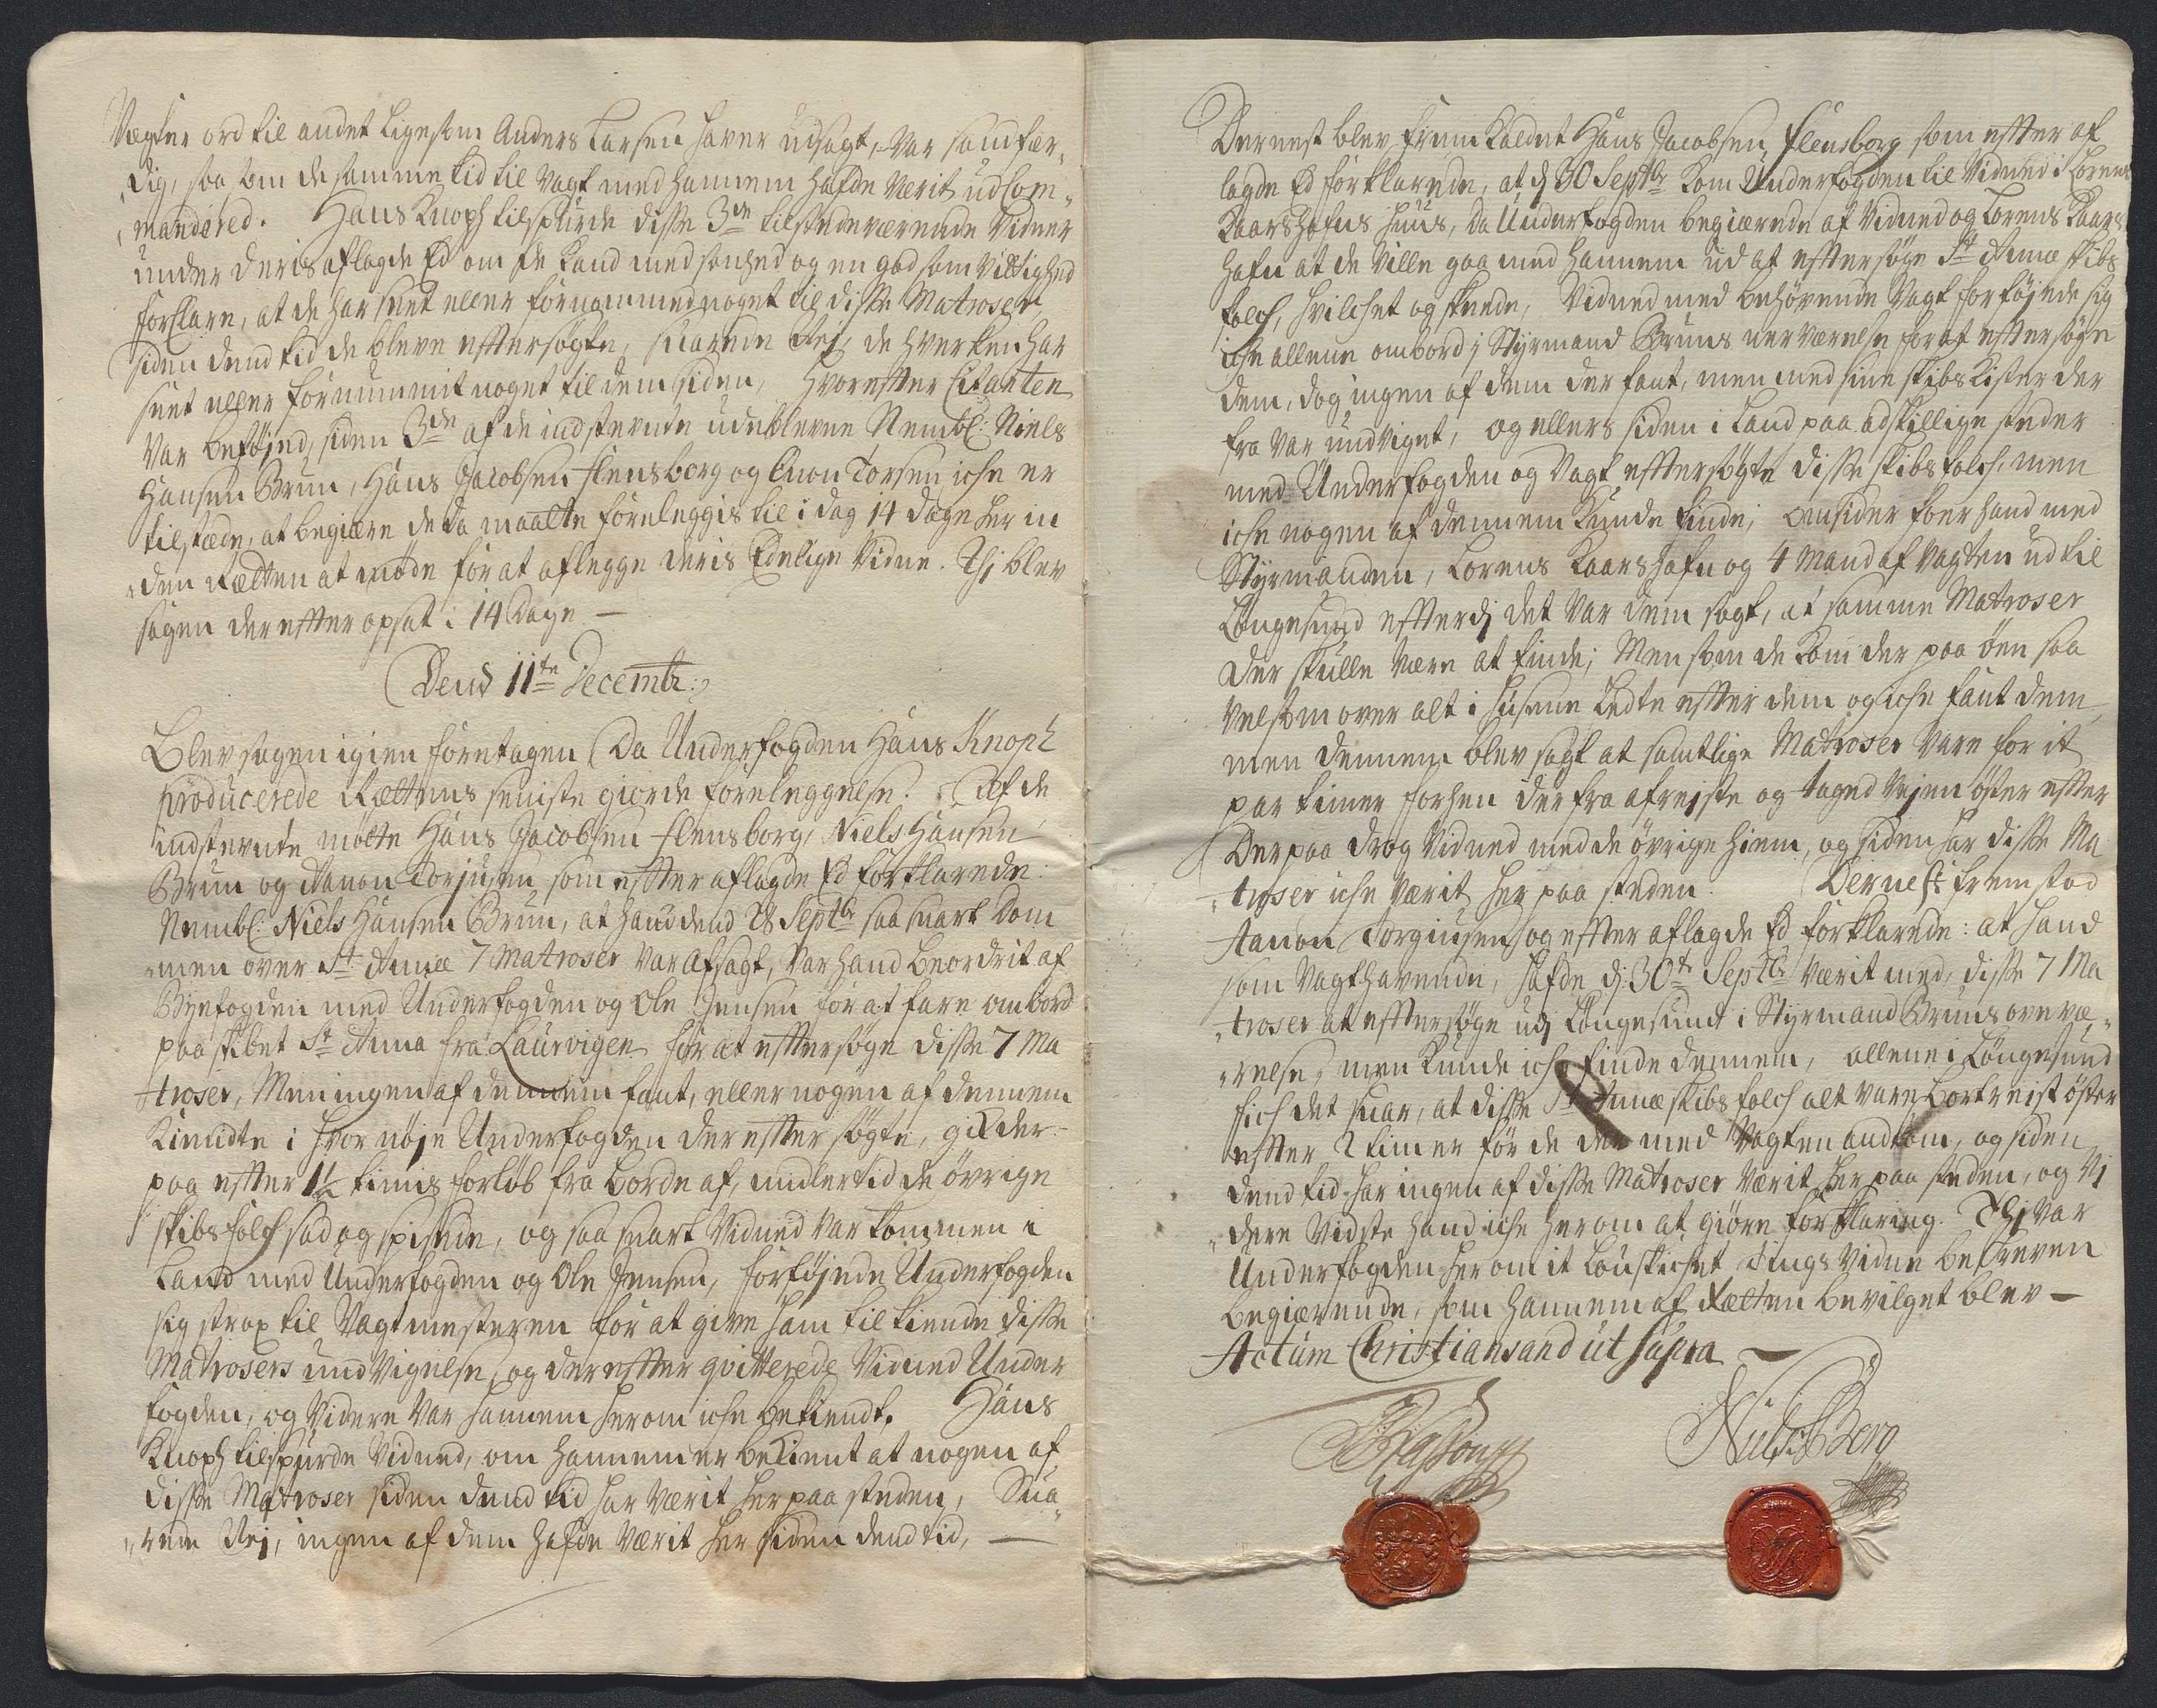 Vegter ord til andet ligesom Anders Larsen haver udsagt, var sandfær„
„dig, saa som de samme tid til vagt med hannem hafde værit udcom„
„manderet. Hans Knoph tilspurde disse 3de tilstedeværende Vidner
under deris aflagde Ed om de kand med sanhed og en god samvittighed
forklare, at de har seet eller fornommed noget til disse Matroser,
siden dend tid de bleve efftersøgte, svarede Nej, de hverken har
seet eller fornummit noget til dem siden, hvorefter Citanten
var beføjed, siden 3de af de indstevnte udeblevne Nembl: Niels
Hansen Brun, Hans Jacobsen Flensborg og Anon Torsen iche er
tilstæde, at begiære de da maatte foreleggis til i dag 14 dage her in
„den Rætten at møde for at aflegge deris Edelige Vidne. Thj blev
sagen dereffter opsat i 14 dage —
Dend 11te Decembr:
Blev sagen igien foretagen, da Underfogden Hans Knoph
producerede Rættens seniste giorde foreleggelse. Af de
indstevnte møtte Hans Jacobsen Flensborg, Niels Hansen
Brun og Aanon Torjusen, som effter aflagde Ed forklarede:
Nembl: Niels Hansen Brun, at hand dend 28 Septbr saa snart dom
„men over St: Annæ 7 Matroser var afsagt, var hand beordrit af
Byefogden med Underfogden og Ole Jensen for at fare ombord
paa skibet St: Anna fra Laurvigen for at efftersøge disse 7 Ma
troser, Men ingen af dennem fant, eller nogen af dennem
kiendte i hvor nøje Underfogden der efftersøgte, gik der„
paa effter 1½ timis forløb fra borde af, midlertid de øvrige
skibsfolch sad og spisede, og saa snart Vidned var kommen i
Land med Underfogden og Ole Jensen, forføjede Underfogden
sig strax til Vagtmesteren for at give ham tilkiende disse
Matrosers undvigelse, og dereffter qvitterede Vidned Under
fogden, og videre var hannem herom iche bekiendt. Hans
Knoph tilspurde Vidned, om hannem er bekient at nogen af
disse Matroser siden dend tid har værit her paa steden, Sva„
„rede Nej, ingen af dem hafde værit her siden dend tid, —
Dernest blev fremkaldet Hans Jacobsen Flensborg som effter af
lagde Ed forklarede, at dj 30 Septbr kom Underfogden til Vidned i Lorens
Kaarshafns huus, da Underfogden begiærede af Vidned og Lorens Kaars
hafn at de ville gaa med hannem ud at efftersøge St: Annæ skibs
folch, hvilchet og skeede, Vidned med behøvende Vagt forføjede sig
iche allene ombord j Styrmand Bruns nerværelse for at efftersøge
dem, dog ingen af dem der fant, men med sine skibs kister der
fra var undviget, og ellers siden i Land paa adskillige steder
med Underfogden og Vagt efftersøgte disse skibsfolch, men
iche nogen af dennem kunde finde; omsider foer hand med
Styrmanden, Lorens Kaarshafn og 4 Mand af Vagten ud til
Langesund efterdj det var dem sagt, at samme Matroser
der skulle være at finde; Men som de kom der paa øen saa
velsom over alt i husene Ledte effter dem og iche fant dem,
men dennem blev sagt at samtlige Matroser vare for it
par timer forhen derfra afrejste og taged Vejen øster effter
Derpaa drog Vidned med de øvrige hiem, og siden har disse Ma
„troser iche værit her paa steden. Dernest fremstod
Aanon Torgiusen og effter aflagde Ed forklarede: at hand
som Vagthavende, hafde dj: 30te Septbr værit med, disse 7 Ma
„troser at efftersøge udj Langesund i Styrmand Bruns overvæ„
„relse, men kunde iche finde dennem, allene i Langesund
fich det svar, at disse St: Annæ skibsfolch alt vare bortreist øster
effter 2 timer før de der med Vagten andkom, og siden
dend tid har ingen af disse Matroser værit her paa steden, og Vi
„dere vidste hand iche herom at giøre forklaring. Thj var
Underfogden herom it louskichet Tings Vidne beskreven
begiærende, som hannem af Rætten bevilget blev —
Actum Christiansand ut supra —